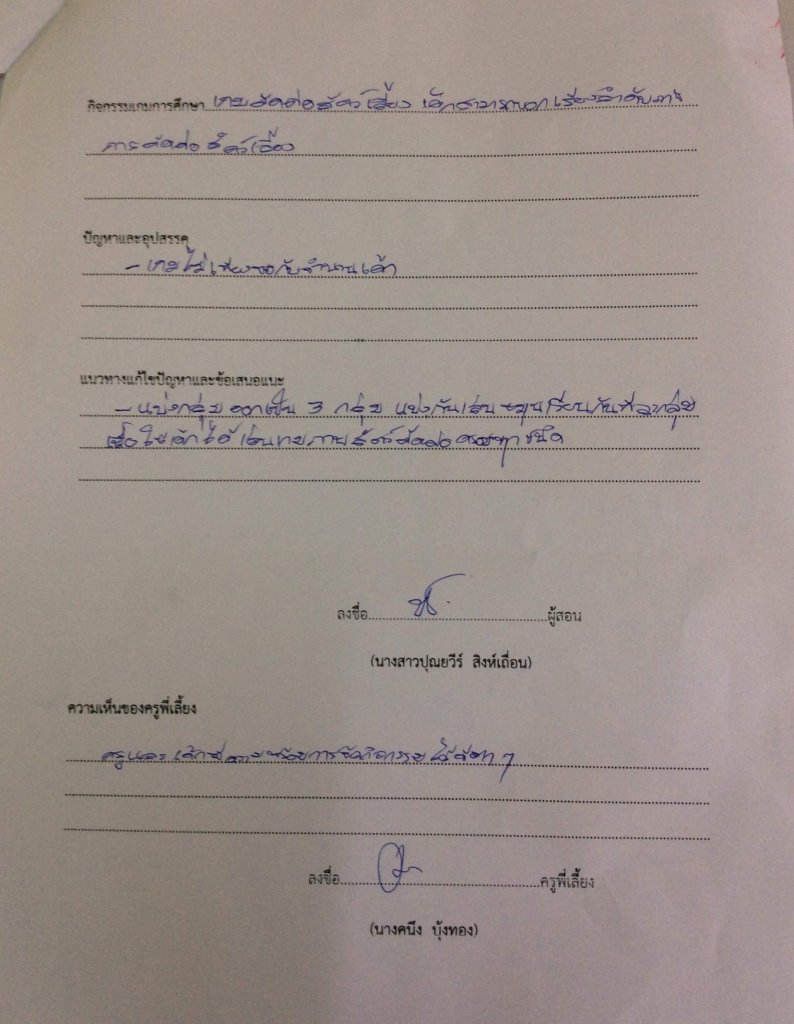 กิจกรรมเกมการศึกษา เกมตัดต่อสัตว์เลี้ยง เด็กสามารถบอก เรียงลำดับภาพ
การตัดต่อสัตว์เลี้ยง
ปัญหาและอุปสรรค
- เกมไม่เพียงพอกับจำนวนเด็ก
แนวทางแก้ไขปัญหาและข้อเสนอแนะ
- แบ่งกลุ่มออกเป็น 3 กลุ่ม แบ่งกันเล่น หมุนเวียนกันทีละกลุ่ม
เพื่อให้เด็กได้เล่นเกมภาพสัตว์ตัดต่อครบทุกชนิด
ลงชื่อ..............................ผู้สอน
(นางสาวปุณยวีร์ สิงห์เถื่อน)
ความเห็นของครูพี่เลี้ยง
ครูและเด็กมีความพร้อมการจัดกิจกรรมได้ดีมาก ๆ
ลงชื่อ..............................ครูพี่เลี้ยง
(นางคนึง บุ้งทอง)